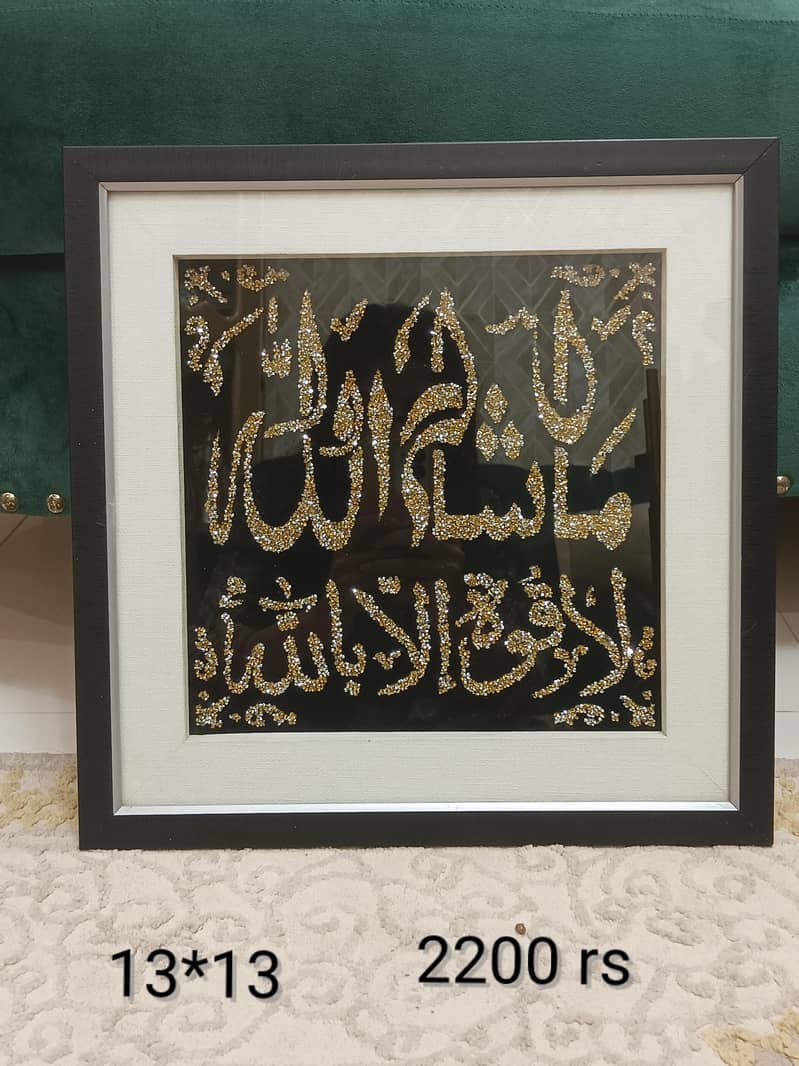 ما شاء الله
لا قوة الا بالله
13*13
2200 rs